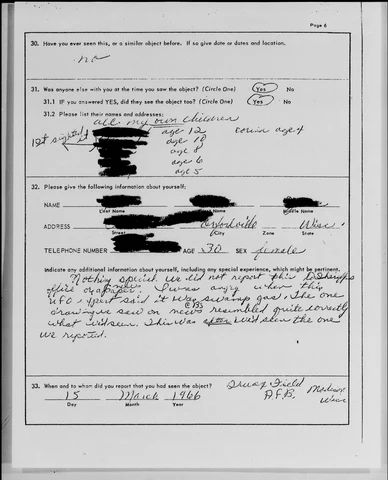 Page 6
30. Have you ever seen this, or a similar object before. If so give date or dates and location.
no
31. Was anyone else with you at the time you saw the object? (Circle One) Yes No
31.1 IF you answered YES, did they see the object too? (Circle One) Yes No
31.2 Please list their names and addresses:
all my own children
1st sighted it age 12 twin age 4
age 10
age 8
age 6
age 5
32. Please give the following information about yourself:
NAME
Last Name First Name Middle Name
ADDRESS Wisc
Street City Zone State
TELEPHONE NUMBER AGE 30 SEX female
Indicate any additional information about yourself, including any special experience, which might be pertinent.
Nothing special we did not report this to Sheriffs
office or newspaper. I was angry when this
UFO expert said it was swamp gas. The one
drawing we saw on CBS news resembled quite correctly
what I'd seen. This was after We'd seen the one
we reported.
33. When and to whom did you report that you had seen the object?
Truax Field
A.F.B. Madison
Wisc
15 March 1966
Day Month Year